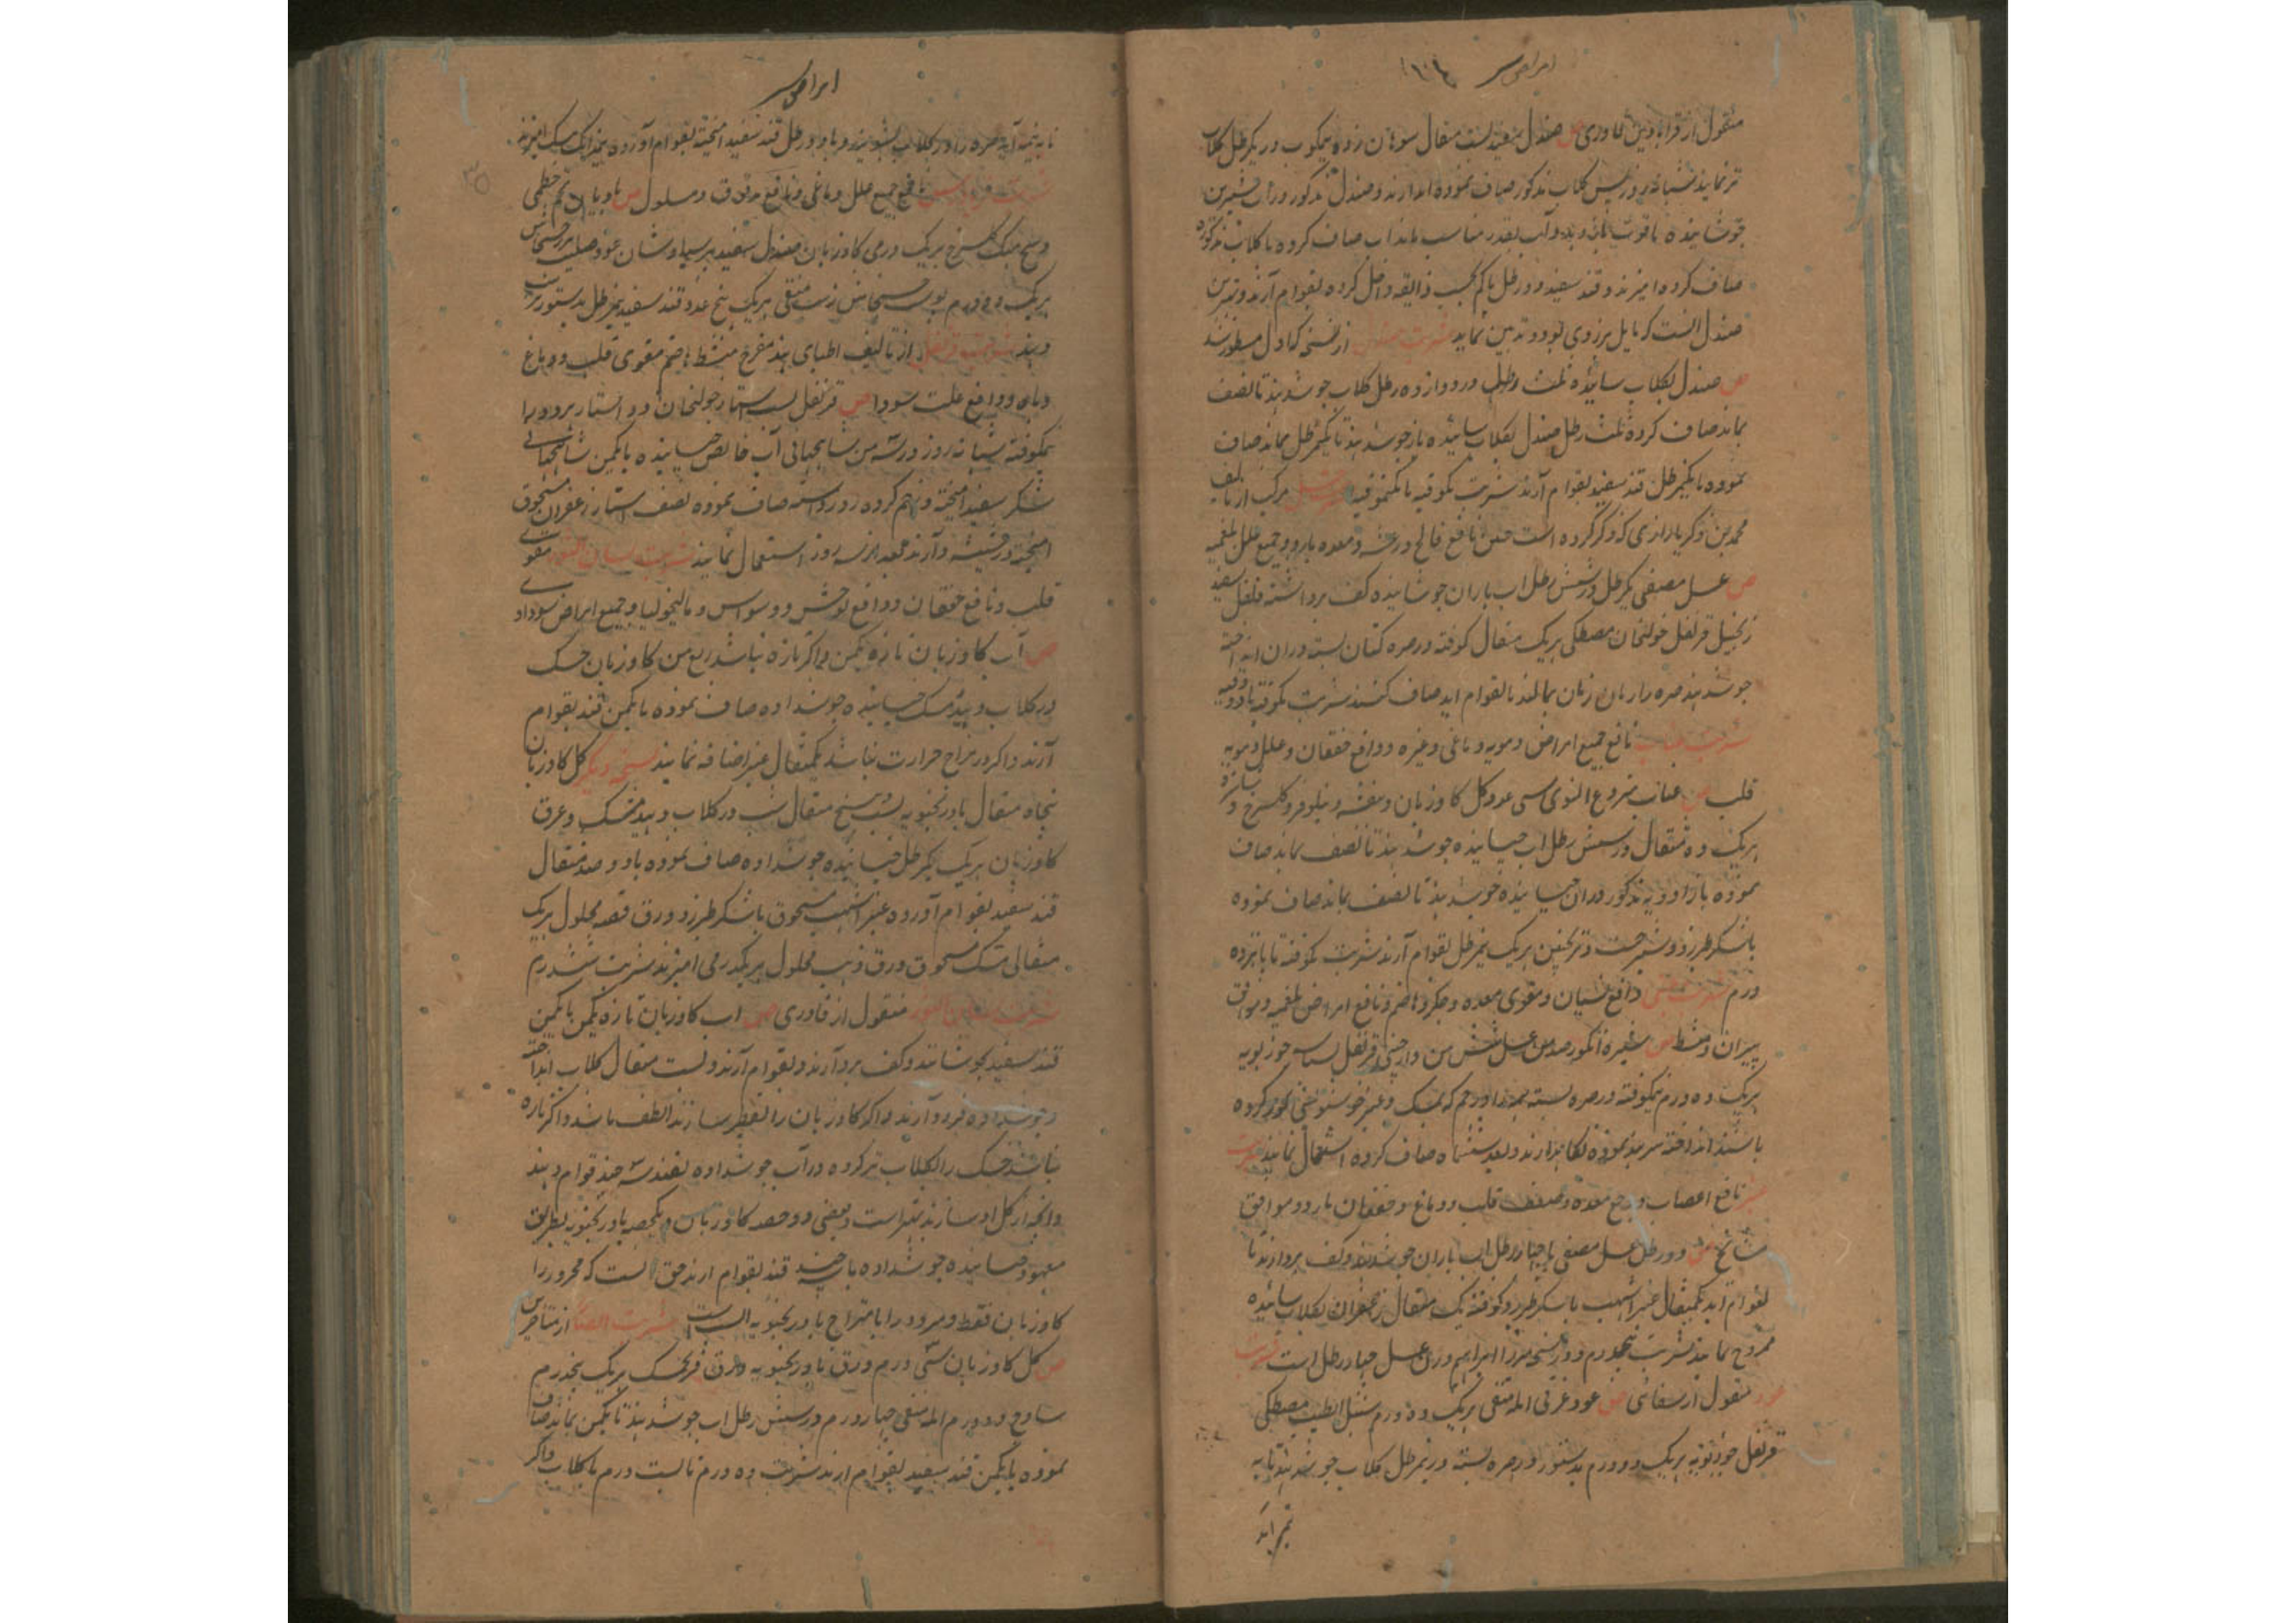 امراض سر ۱۰۴
منقول از قرابادین قادری ص صندل سفید بست مثقال سوهان زده نیمکوب در یکرطل کلاب
تر نمایند شبانه روز پس کلاب مذکور صاف نموده بدارند و صندل مذکور در آب شیرین
جوشانیده تا قوت بآن دهد و آب بقدر مناسب بماند آب صاف کرده با کلاب مذکوره
صاف کرده امیزند و قند سفید دو رطل یا کم بحسب ذایقه داخل کرده بقوام آرند و بهترین
صندل انست که مایل بزردی بود و ته بین نماید شربت صندل از نسخه که اول مسطور شد
ص صندل بکلاب سائیده ثلث رطل در دوازده رطل کلاب جوش دهند تا نصف
بماند صاف کرده ثلث رطل صندل بکلاب سائیده باز جوش دهند تا یکرطل بماند صاف
نموده با یکرطل قند سفید بقوام آرند شربت یکوقیه تا یکنیموقیه شربت عسل مرکب از تالیف
محمد بن ذکریا رازی که ذکر کرده است نافع فالج و رعشه و معده بارد و جمیع علل بلغمیه
ص عسل مصفی یکرطل در شش رطل اب باران جوشانیده کف برداشته فلفل سفید
زنجبیل قرنفل خولنجان مصطکی هریک مثقال کوفته در صره کتان بسته دران انداخته
جوش دهند صره را زمان زمان بمالند تا بقوام اید صاف کنند شربت یکوقیه تا دو وقیه
شربت عناب نافع جمیع امراض دمویه دماغی و غیره و دافع خفقان و علل دمویه
قلب ص عناب منزوع النوی سی عدد کل کاوزبان و بنفشه و نیلوفر و کلسرخ و
هریک ده مثقال در شش رطل اب خیسانیده جوش دهند تا نصف بماند صاف
نموده باز ادویه مذکور دران خیسانیده جوش دهند تا نصف بماند صاف نموده
با شکر طبرزد و شیرخشت و ترنجبین هریک نیمرطل بقوام آرند شربت یکوقیه تا پانزده
درم شربت عنبی دافع نسیان و مقوی معده و جکر و هاضم و نافع امراض بلغمیه و موافق
پیران و منشط ص شیره انکور صد من عسل شش من دارچینی قرنفل بسباسه جوزبویه
هریک ده درم نیمکوفته در صره بسته
باشند انداخته سر بند نموده نکاهدارند و بعد ششماه صاف کرده استعمال نمایند شربت
عنبر نافع اعصاب و وجع معده و ضعف قلب و دماغ و خفقان بارد و موافق
مشائخ ص دو رطل عسل مصفی با چهار رطل اب باران جوش دهند و کف بردارند تا
بقوام آید یکمثقال عنبر اشهب با شکر طبرزد کوفته یک مثقال زعفران بکلاب سائیده
ممزوج نمایند شربت چهار درم و در نسخه میرزا ابراهیم وزن عسل چهار رطل است شربت
عود منقول از شفائی ص عود غرقی امله منقی هریک ده درم سنبل الطیب مصطکی
قرنفل جوزبویه هریک دو درم بدستور در صره بسته در نیمرطل کلاب جوش دهند تا به
نیمه آید
امراض سر
تا به نیمه آید صره را در کلاب بشویند و با دو رطل قند سفید امیخته بقوام آورده نیمدانک مشک امیزند
نافع جمیع علل دماغی و نافع مدقوق و مسلول ص بادیان تخم خطمی
کلسرخ هریک درمی کاوزبان صندل سفید پرسیاوشان عود صلیب تخم خشخاش
هریک دو درم پوست خشخاش زبیب منقی هریک پنج عدد قند سفید نیمرطل بدستور ترتیب
دهند شربت قرنفل از تالیف اطبای هند مفرح منشط هاضم مقوی قلب و دماغ
و باه و دافع علت سودا ص قرنفل بست استار خولنجان دو استار هر دو را
نیمکوفته شبانه روز در سه من شاهجهانی آب خالص خیسانیده با یکمن شاهجهانی
شکر سفید امیخته و نهم کرده زور و آتشه صاف نموده نصف استار زعفران مسحوق
امیخته در شیشه دآرند بعد از سه روز استعمال نمایند شربت لسان الثور مقوی
قلب و نافع خفقان و دافع توحش و وسواس و مالیخولیا و جمیع امراض سوداوی
ص آب کاوزبان تازه یکمن و اکر تازه نباشد ربع من کاوزبان خشک
در کلاب و بیدمشک خیسانیده جوش داده صاف نموده با یکمن قند بقوام
آرند و اکر در مزاج حرارت نباشد یکمثقال عنبر اضافه نمایند نسخه دیگر کل کاوزبان
پنجاه مثقال بادرنجبویه بست و پنج مثقال شب در کلاب و بیدمشک و عرق
کاوزبان هریک یکرطل خیسانیده جوش داده صاف نموده با دو صد مثقال
قند سفید بقوام آورده عنبر اشهب مسحوق با شکر طبرزد و ورق فضه محلول هریک
مثقالی مشک مسحوق ورق ذهب محلول هریک درمی امیزند شربت ششدرم
شربت لسان الثور منقول از قادری ص اب کاوزبان تازه یکمن با یکمن
قند سفید بجوشانند و کف بردآرند و بقوام آرند و بست مثقال کلاب انداخته
و جوش داده فرود آرند و اکر کاوزبان را تقطیر سازند الطف باشد و اکر تازه
نباشد خشک را بکلاب تر کرده در آب جوش داده بقند سه چند قوام دهند
و انچه از کل او سازند بهتر است و بعضی دو حصه کاوزبان و یکحصه بادرنجبویه بطریق
معهود خیسانیده جوش داده با سه چند قند بقوام ارند حق انست که محرور را
کاوزبان فقط و مبرود را با امتزاج بادرنجبویه انسب است شربت ایضا از متاخرین
ص کل کاوزبان سی درم ورق بادرنجبویه ورق فرنجمشک هریک پنجدرم
ساذج دو درم امله منقی چهار درم در شش رطل اب جوش دهند تا یکمن بماند صاف
نموده با یکمن قند سفید بقوام ارند شربت ده درم تا بست درم با کلاب و اکر